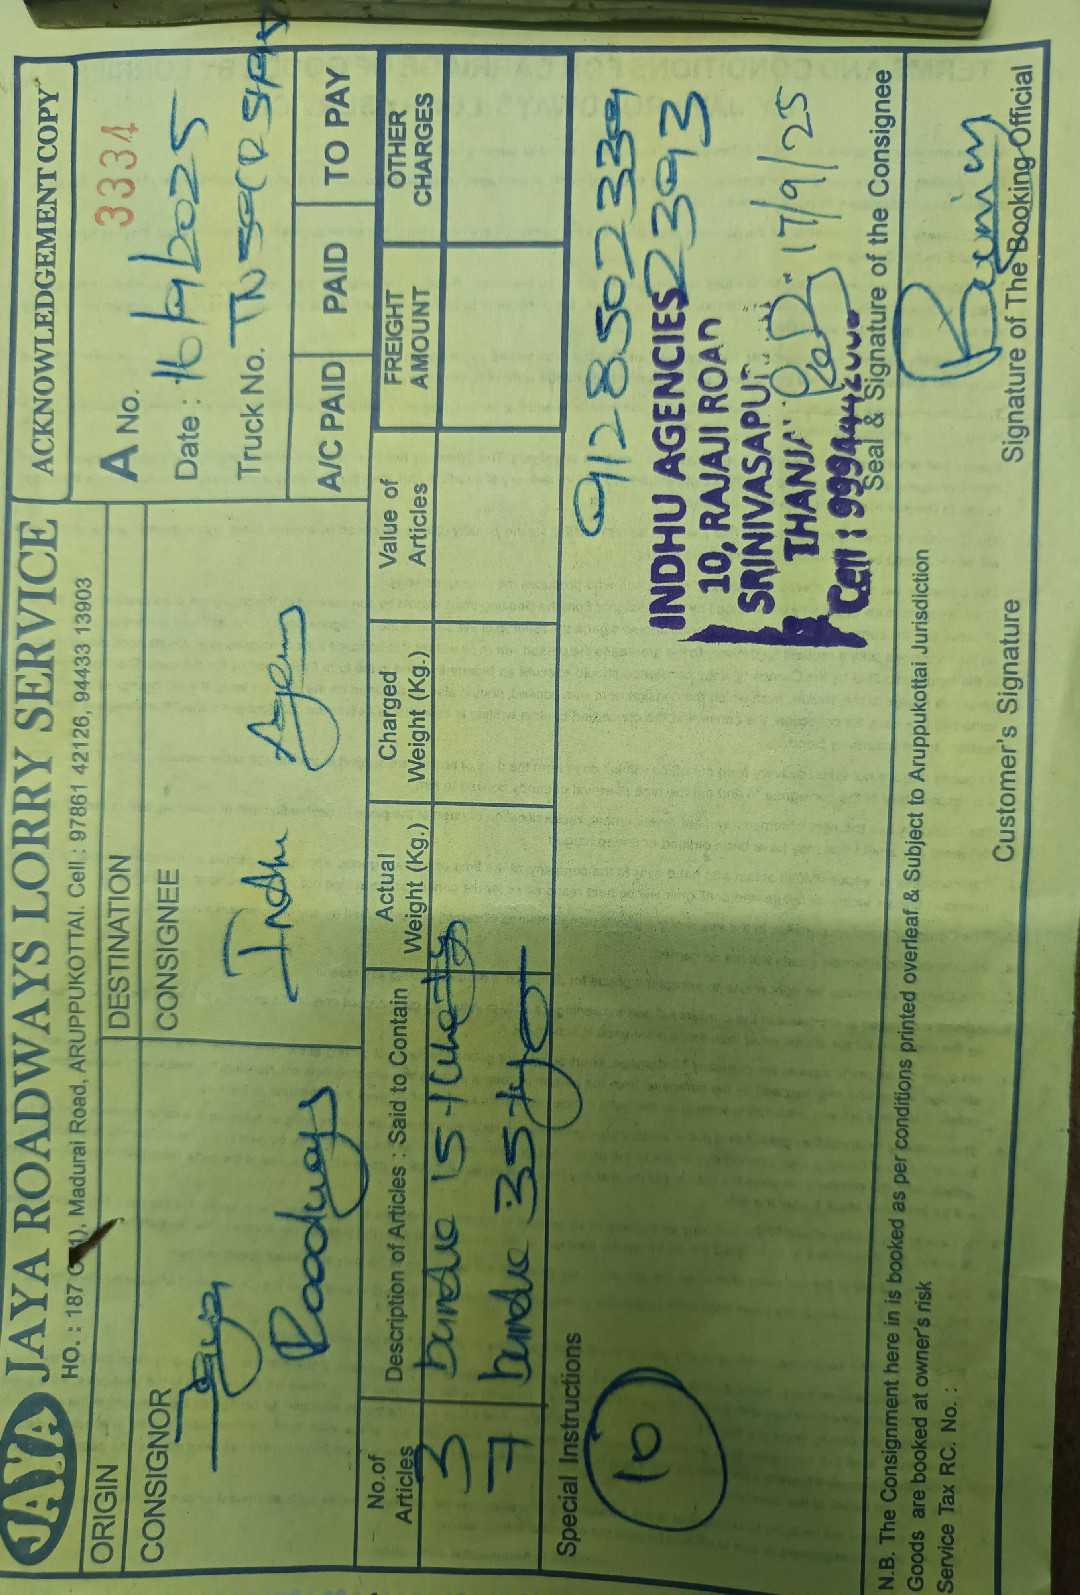 JAYA
JAYA ROADWAYS LORRY SERVICE
HO. : 187 Madurai Road, ARUPPUKOTTAI. Cell : 97861 42126, 94433 13903
ACKNOWLEDGEMENT COPY
A No. 3334
Date : 16/9/2025
Truck No. TN
ORIGIN
DESTINATION
CONSIGNOR
Jaya
Roadways
CONSIGNEE
Indhu
A/C PAID PAID TO PAY
No.of Articles
Description of Articles : Said to Contain
Actual Weight (Kg.)
Charged Weight (Kg.)
Value of Articles
FREIGHT AMOUNT
OTHER CHARGES
3 bundle 15
7 bundle 35
Special Instructions
10
INDHU AGENCIES
10, RAJAJI ROAD
Cell :
17/9/25
Seal & Signature of the Consignee
N.B. The Consignment here in is booked as per conditions printed overleaf & Subject to Aruppukottai Jurisdiction
Goods are booked at owner's risk
Service Tax RC. No. :
Customer's Signature
Signature of The Booking Official